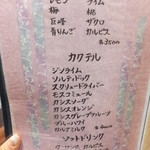 レモン ライム
梅 桃
巨峰 ザクロ
青りんご カルピス
各350円
カクテル
ジンライム
ソルティドッグ
スクリュードライバー
モスコミュール
カシスソーダ
カシスオレンジ
カシスグレープフルーツ
ブルーハワイ
カルアミルク
ソフトドリンク